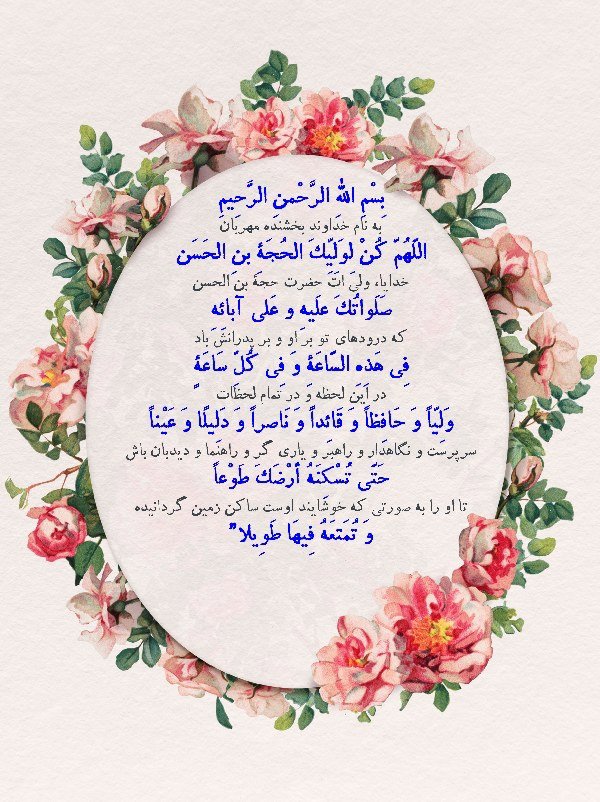 بِسْمِ اللهِ الرَّحْمنِ الرَّحیمِ
به نام خداوند بخشنده مهربان
اللّهُمَّ كُنْ لِوَلِیِّكَ الحُجَةِ بنِ الحَسَن
خدایا، ولیّ اتَ حضرت حجةِ بن الحسن
صَلَواتُكَ علَیهِ و عَلی آبائِه
که درودهای تو بر او و بر پدرانشَ باد
فِی هَذِهِ السَّاعَةِ وَ فِی كُلِّ سَاعَةٍ
در این لحظه و در تمام لحظات
وَلِیّاً وَ حَافِظاً وَ قَائِداً وَ نَاصِراً وَ دَلِیلًا وَ عَیْناً
سرپرست و نگاهدار و راهبر و یاری گر و راهنما و دیدبان باش
حَتَّى تُسْكِنَهُ أرْضَكَ طَوْعاً
تا او را به صورتی که خوشایند اوست ساکن زمین گردانیده
وَ تُمَتعَهُ فِیهَا طَوِیلا”